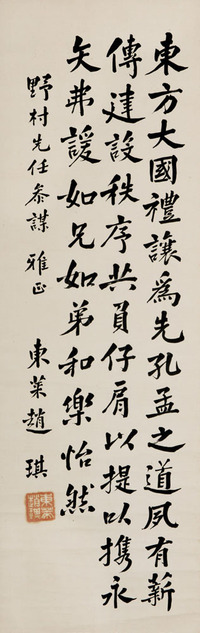 東方大國禮讓爲先孔孟之道夙有薪
傳建設秩序共負仔肩以提以携永
矢弗諼如兄如弟和樂怡然
野村先任參謀 雅正
東萊趙琪